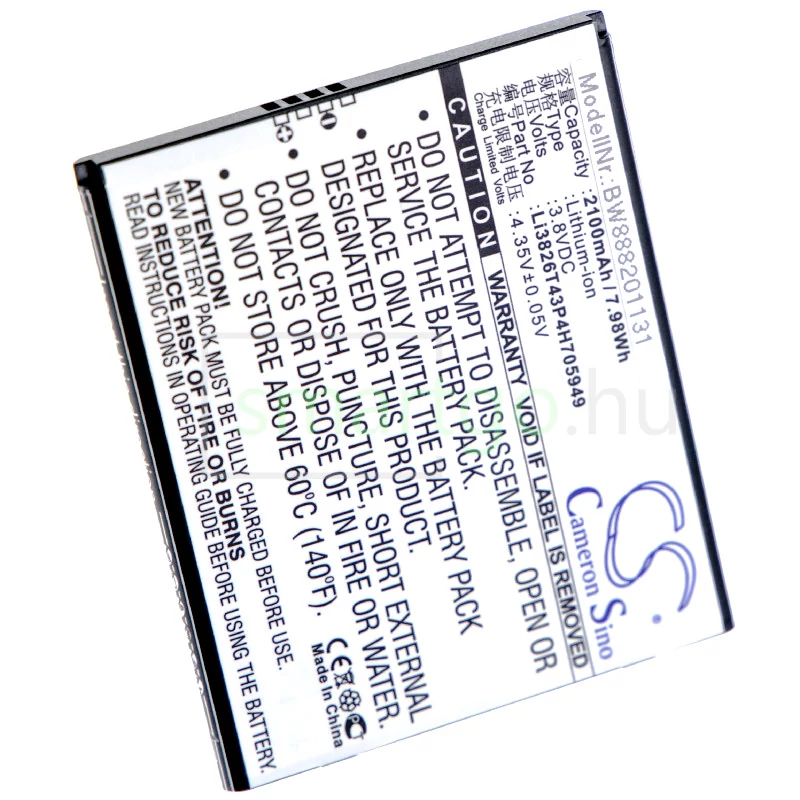 ModellNr.:BW888201131
容量Capacity :2100mAh/7.98Wh
规格Type :Lithium-ion
电压Volts :3.8VDC
编号Part No. :Li3826T43P4H705949
充电限制电压 :4.35V±0.05V
Charge Limited Volts
CS
®
Cameron Sino
CAUTION
WARRANTY VOID IF LABEL IS REMOVED
• DO NOT ATTEMPT TO DISASSEMBLE, OPEN OR
SERVICE THE BATTERY PACK.
• REPLACE ONLY WITH THE BATTERY PACK
SPECIFIED FOR THIS PRODUCT.
• DO NOT CRUSH, PUNCTURE, SHORT EXTERNAL
CONTACTS, OR DISPOSE OF IN FIRE OR WATER.
• DO NOT STORE ABOVE 60°C (140°F).
ATTENTION:
TO REDUCE RISK OF FIRE OR BURNS
NEW BATTERY PACK MUST BE FULLY CHARGED BEFORE USE.
READ INSTRUCTIONS IN OPERATING GUIDE BEFORE USING THE BATTERY.
CE
Made In China
smartgo.hu